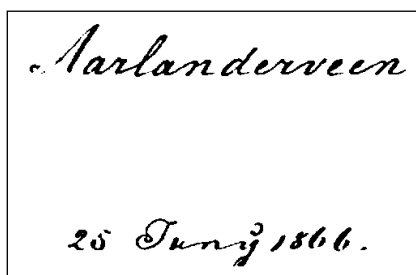 Aarlanderveen
25 Juny 1866.